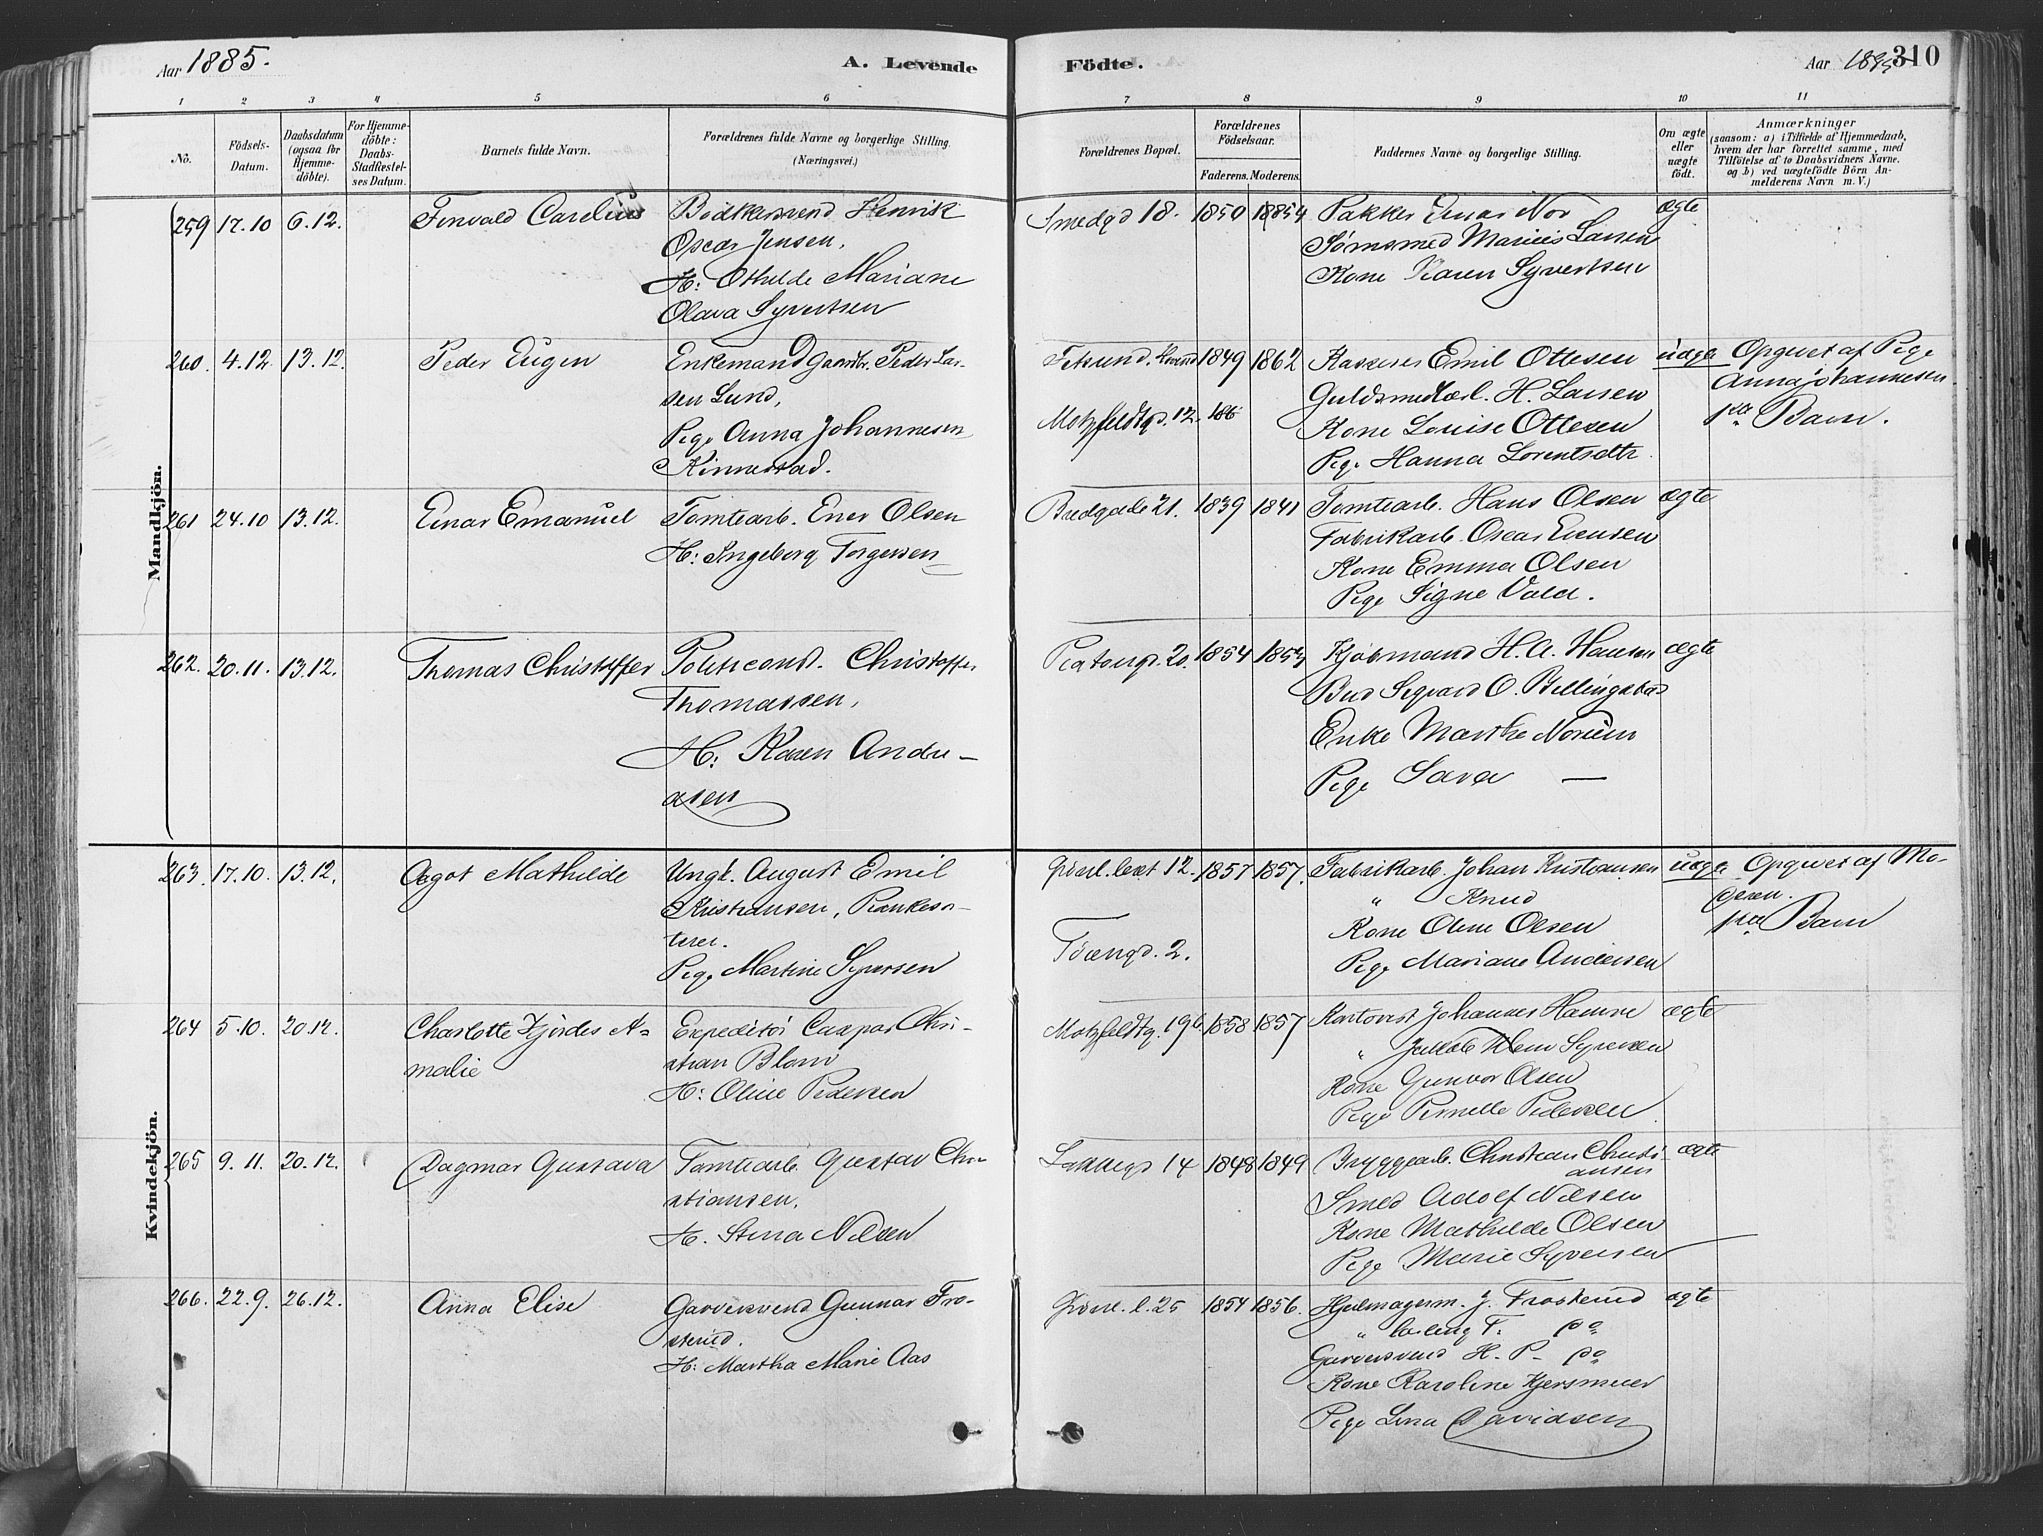 Aar 1885.
A. Levende
Födte.
Aar 1885
310
1 2 3 4 5 6 7 8 9 10 11
No.
Födsels-Datum.
Daabsdatum (ogsaa for Hjemmedöbte).
For Hjemmedöbte: Daabs-Stadfestelses Datum.
Barnets fulde Navn.
Forældrenes fulde Navne og borgerlige Stilling. (Næringsvei.)
Forældrenes Bopæl.
Forældrenes Födselsaar.
Faderens. Moderens.
Faddernes Navne og borgerlige Stilling.
Om ægte eller uægte födt.
Anmærkninger
(saasom: a) i Tilfælde af Hjemmedaab, hvem der har forrettet samme, med Tilföielse af to Daabsvidners Navne, og b) ved uægtefödte Börn Anmelderens Navn m. V.)
Mandkjön.
259 17.10 6.12. Finvald Carelius
Bödkersvend Henrik
Oscar Jensen,
H: Othilde Mariane
Olava Syvertsen
Smedgd 18. 1850 1854
Pakker Einar Nor
Sömsmed Marius Larsen
Kone Karen Syvertsen
ægte
260. 4.12 13.12. Peder Eugen
Enkemand Gaardbr. Peder Lar-
sen Lund,
Pige Anna Johannesen
Kinnestad.
Fetsund 1849 1862
Motzfeldtgd. 12. 186
Kasserer Emil Ottesen
Guldsmedlærl. H. Larsen
Kone Louise Ottesen
Pige Hanna Lorentsdtr.
uægte
Opgivet af Pige
Anna Johannesen.
1ste Barn.
261 24.10 13.12. Einar Emanuel
Tomtearb. Ener Olsen
H: Ingeborg Torgersen
Bredgade 21. 1839 1841
Tomtearb. Hans Olsen
Fabrikarb. Oscar Evensen
Kone Emma Olsen
Pige Signe Vold.
ægte
262. 20.11. 13.12. Thomas Christoffer
Politiconst. Christoffer
Thomassen,
H: Karen Andre-
asen
Platougd. 20. 1854 1853
Kjöbmand H. A. Hansen
Bud Sigvard O. Billingstad
Enke Marthe Noreen
Pige Sara —
ægte
Kvindekjön.
263. 17.10. 13.12. Aagot Mathilde
Ungk. August Emil
Kristiansen, Plankesor-
terer.
Pige Martine Syversen
Grönl. 12. 1857 1857.
Tvængd. 2.
Fabrikarb. Johan Kristiansen
" Knud
Kone Oline Olsen
Pige Mariane Andersen
uægte
Opgivet af Mo-
deren.
1ste Barn
264 5.10. 20.12. Charlotte Hjördis A-
malie
Expeditör Caspar Chri-
stian Blom
H: Oline Pedersen
Motzfeldtg. 19b 1858 1857
Kontorist Johannes Hamre
" Jakob Klem Syversen
Kone Gunvor Olsen
Pige Pernille Pedersen
ægte
265 9.11. 20.12. Dagmar Gustava
Tomtearb. Gustav Chri-
stiansen.
H. Stina Nilsen
Lakkegd 14 1848 1849
Bryggearb. Christian Christi-
ansen
Smed Adolf Nilsen
Kone Mathilde Olsen
Pige Marie Syversen
ægte
266. 22.9. 26.12. Anna Elise
Garversvend Gunnar Fro-
sterud.
H: Martha Marie Aas
Grönl. l. 25 1854 1856.
Hjulmagerm. J. Frosterud
" Erling F. do
Garversvend H. P. do
Kone Karoline Hjersmeier
Pige Lina Davidsen
ægte